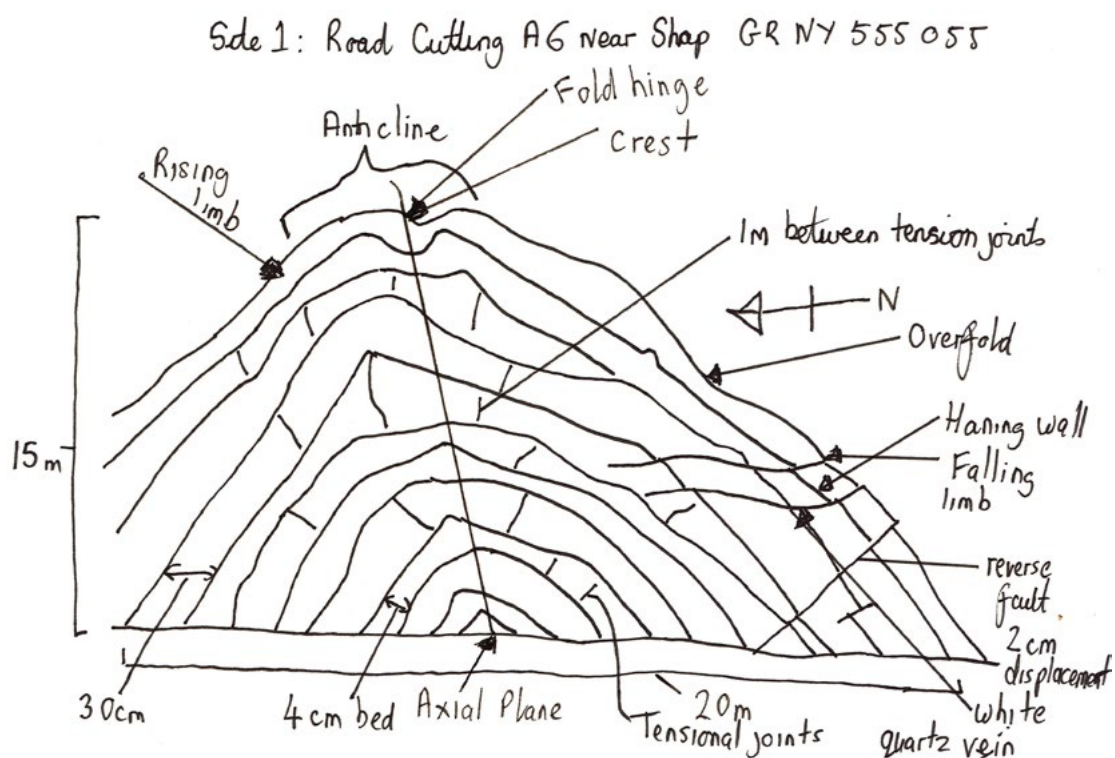 Side 1: Road Cutting A6 Near Shap GR NY 555 055
Fold hinge
Anticline
Crest
Rising
limb
1m between tension joints
N
Overfold
Haning wall
Falling
limb
15m
reverse
fault
2cm
displacement
30cm
4cm bed
Axial Plane
20m
Tensional joints
white
quartz vein